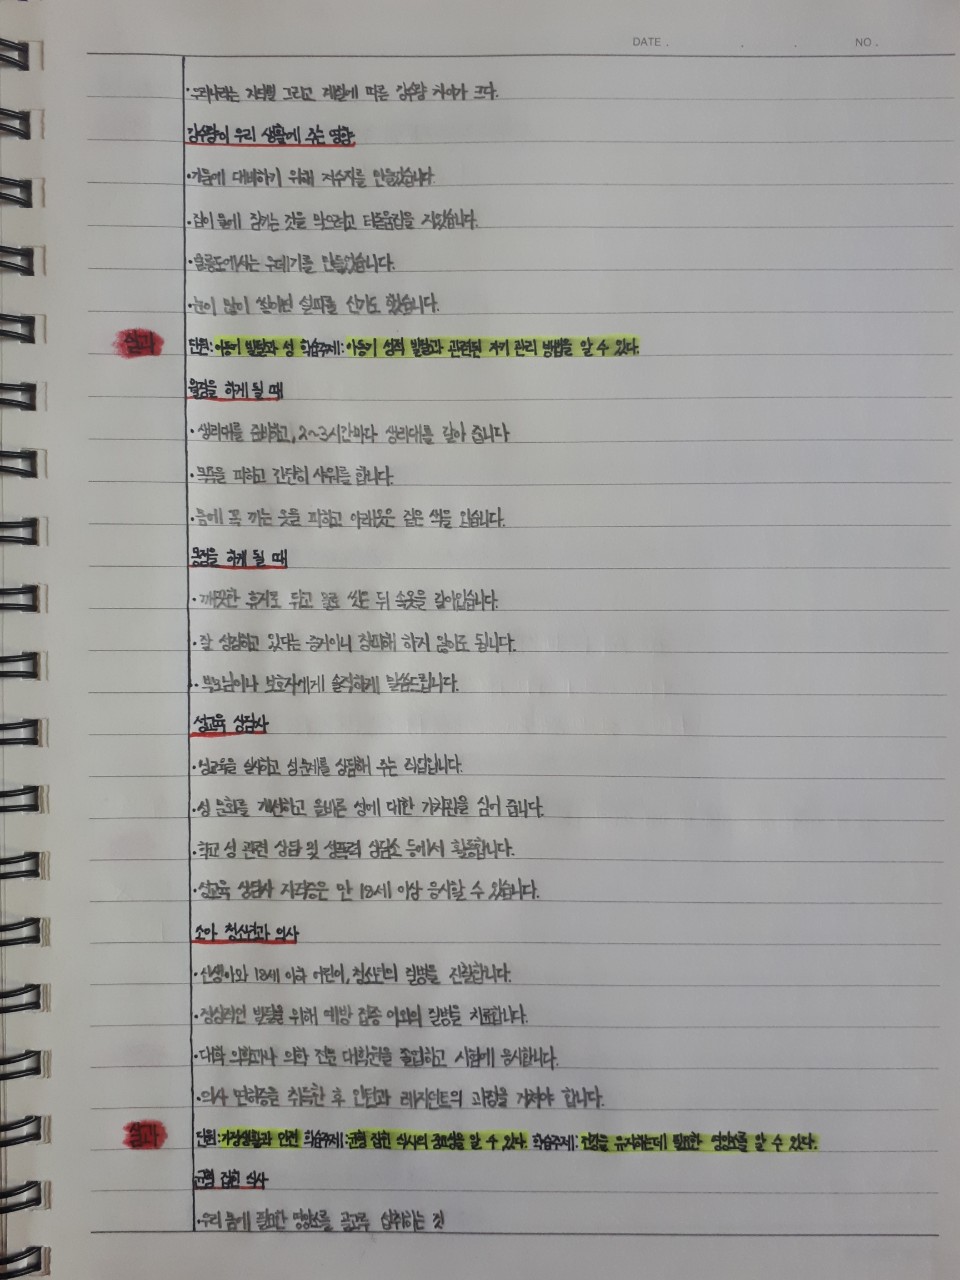 DATE . . . NO .
·우리나라는 지역별 그리고 계절에 따른 강수량 차이가 크다.
강수량이 우리 생활에 주는 영향
·가뭄에 대비하기 위해 저수지를 만들었습니다.
·집이 물에 잠기는 것을 막으려고 터돋움집을 지었습니다.
·울릉도에서는 우데기를 만들었습니다.
·눈이 많이 쌓이면 설피를 신기도 했습니다.
실과 단원: 아동기 발달과 성 학습주제: 아동기 성적 발달과 관련된 자기 관리 방법을 알 수 있다.
월경을 하게 될 때
·생리대를 준비하고, 2~3시간마다 생리대를 갈아 줍니다
·목욕을 피하고 간단히 샤워를 합니다.
·몸에 꼭 끼는 옷을 피하고 아래옷은 짙은 색을 입습니다.
몽정을 하게 될 때
·깨끗한 휴지로 닦고 물로 씻은 뒤 속옷을 갈아입습니다.
·잘 성장하고 있다는 증거이니 창피해 하지 않아도 됩니다.
·부모님이나 보호자에게 솔직하게 말씀드립니다.
성교육 상담사
·성교육을 실시하고 성문제를 상담해 주는 직업입니다.
·성 문화를 개선하고 올바른 성에 대한 가치관을 심어 줍니다.
·학교 성 관련 상담 및 성폭력 상담소 등에서 활동합니다.
·성교육 상담사 자격증은 만 18세 이상 응시할 수 있습니다.
소아 청소년과 의사
·신생아와 18세 이하 어린이, 청소년의 질병을 진찰합니다.
·정상적인 발달을 위해 예방 접종 이외의 질병을 치료합니다.
·대학 의학과나 의학 전문 대학원을 졸업하고 시험에 응시합니다.
·의사 면허증을 취득한 후 인턴과 레지던트의 과정을 거쳐야 합니다.
실과 단원: 가정생활과 안전 학습주제: 균형 잡힌 식사의 중요성을 알 수 있다. 학습주제: 건강을 유지하는데 필요한 영양소를 알 수 있다.
균형 잡힌 식사
·우리 몸에 필요한 영양소를 골고루 섭취하는 것